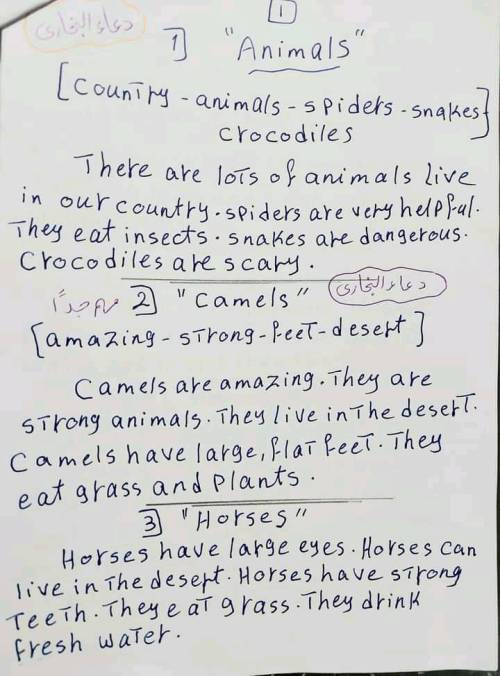 1
دعاء البخارى
1 "Animals"
[country - animals - spiders - snakes
crocodiles]
There are lots of animals live
in our country. spiders are very helpful.
They eat insects. snakes are dangerous.
Crocodiles are scary.
مهم جدًا 2 "Camels" دعاء البخارى
[amazing - strong - feet - desert]
Camels are amazing. They are
strong animals. They live in the desert.
Camels have large, flat feet. They
eat grass and plants.
3 "Horses"
Horses have large eyes. Horses can
live in the desert. Horses have strong
teeth. They eat grass. They drink
fresh water.